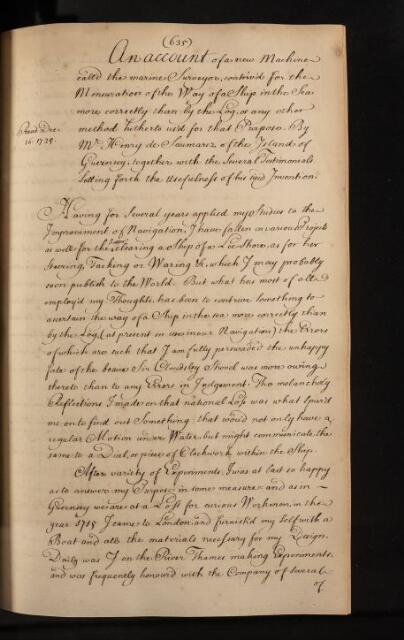 (635)
An account of a new Machine
called the marine Surveyor, contriv'd for the
Mensuration of the Way of a Ship in the Sea
more correctly then by the Log, or any other
method hitherto us'd for that Purpose. By
Mr. Henry de Saumarez of the Island of
Guernsey, together with the Several Testimonials
Setting forth the Usefulness of his said Invention.
Read Dec.
16. 1729.
Having for Several years applied my Studies to the
Improvement of Navigation, I have fallen on various Projects
as well for the clearing a Ship of a Lee Shore, as for her
Steering, Tacking or Waring &c, which I may probably
soon publish to the World. But what has most of all
employ'd my Thoughts, has been to contrive something to
ascertain the way of a Ship in the sea more correctly than
by the Log, (at present in use in our Navigation) the Errors
of which are such that I am fully perswaded the unhappy
fate of the brave Sir Cloudsley Shovel was more owing
thereto than to any Error in Judgement. The melancholy
Reflections I made on that national Loss was what spurr'd
me on to find out Something that would not only have a
regular Motion under Water but might communicate the
same to a Dial, or piece of Clockwork within the Ship.
After variety of Experiments, I was at last so happy
as to answer my Purpose in some measure and as in
Guernsey we are at a Loss for curious Workmen, in the
year 1715 I came to London and furnish'd my Self with a
Boat and all the materials necessary for my Design.
Daily was I on the River Thames making Experiments,
and was frequently honour'd with the Company of Several
of